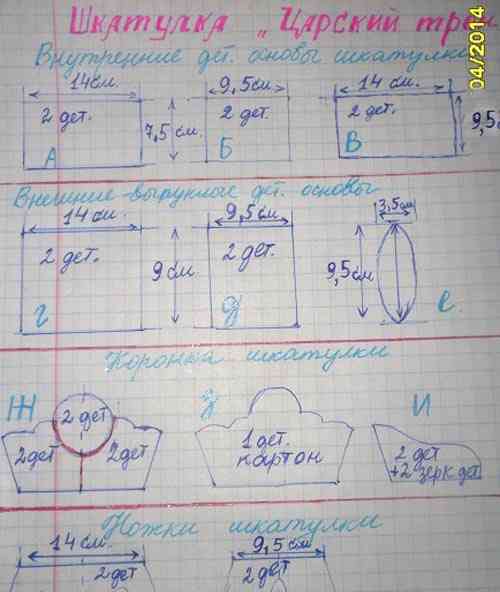 Шкатулка „Царский трон
04/2014
Внутренние дет. основы шкатулки
14см. 9,5см. 14 см.
2 дет. 7,5 см. 2 дет. 2 дет. 9,5
А Б В
Внешние-выпуклые дет. основы
14 см. 9,5см. 3,5см
2 дет. 9см 2 дет. 9,5см
г д е
Коронка шкатулки
Ж З И
2 дет
2дет 2дет 1 дет. 2 дет
картон +2 зерк дет
Ножки шкатулки
14 см. 9,5см
2 дет 2 дет